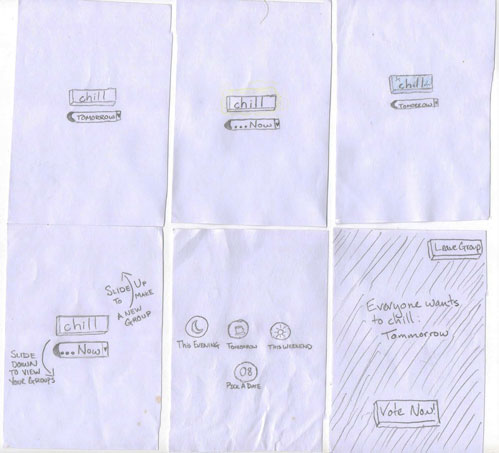 chill
TOMORROW
chill
...Now
chill
TOMORROW
SLIDE UP
TO MAKE
A NEW
GROUP
chill
...Now
SLIDE
DOWN
TO VIEW
YOUR GROUPS
THIS EVENING
TOMORROW
THIS WEEKEND
08
PICK A DATE
Leave Group
Everyone wants
to chill:
Tommorrow
Vote Now!